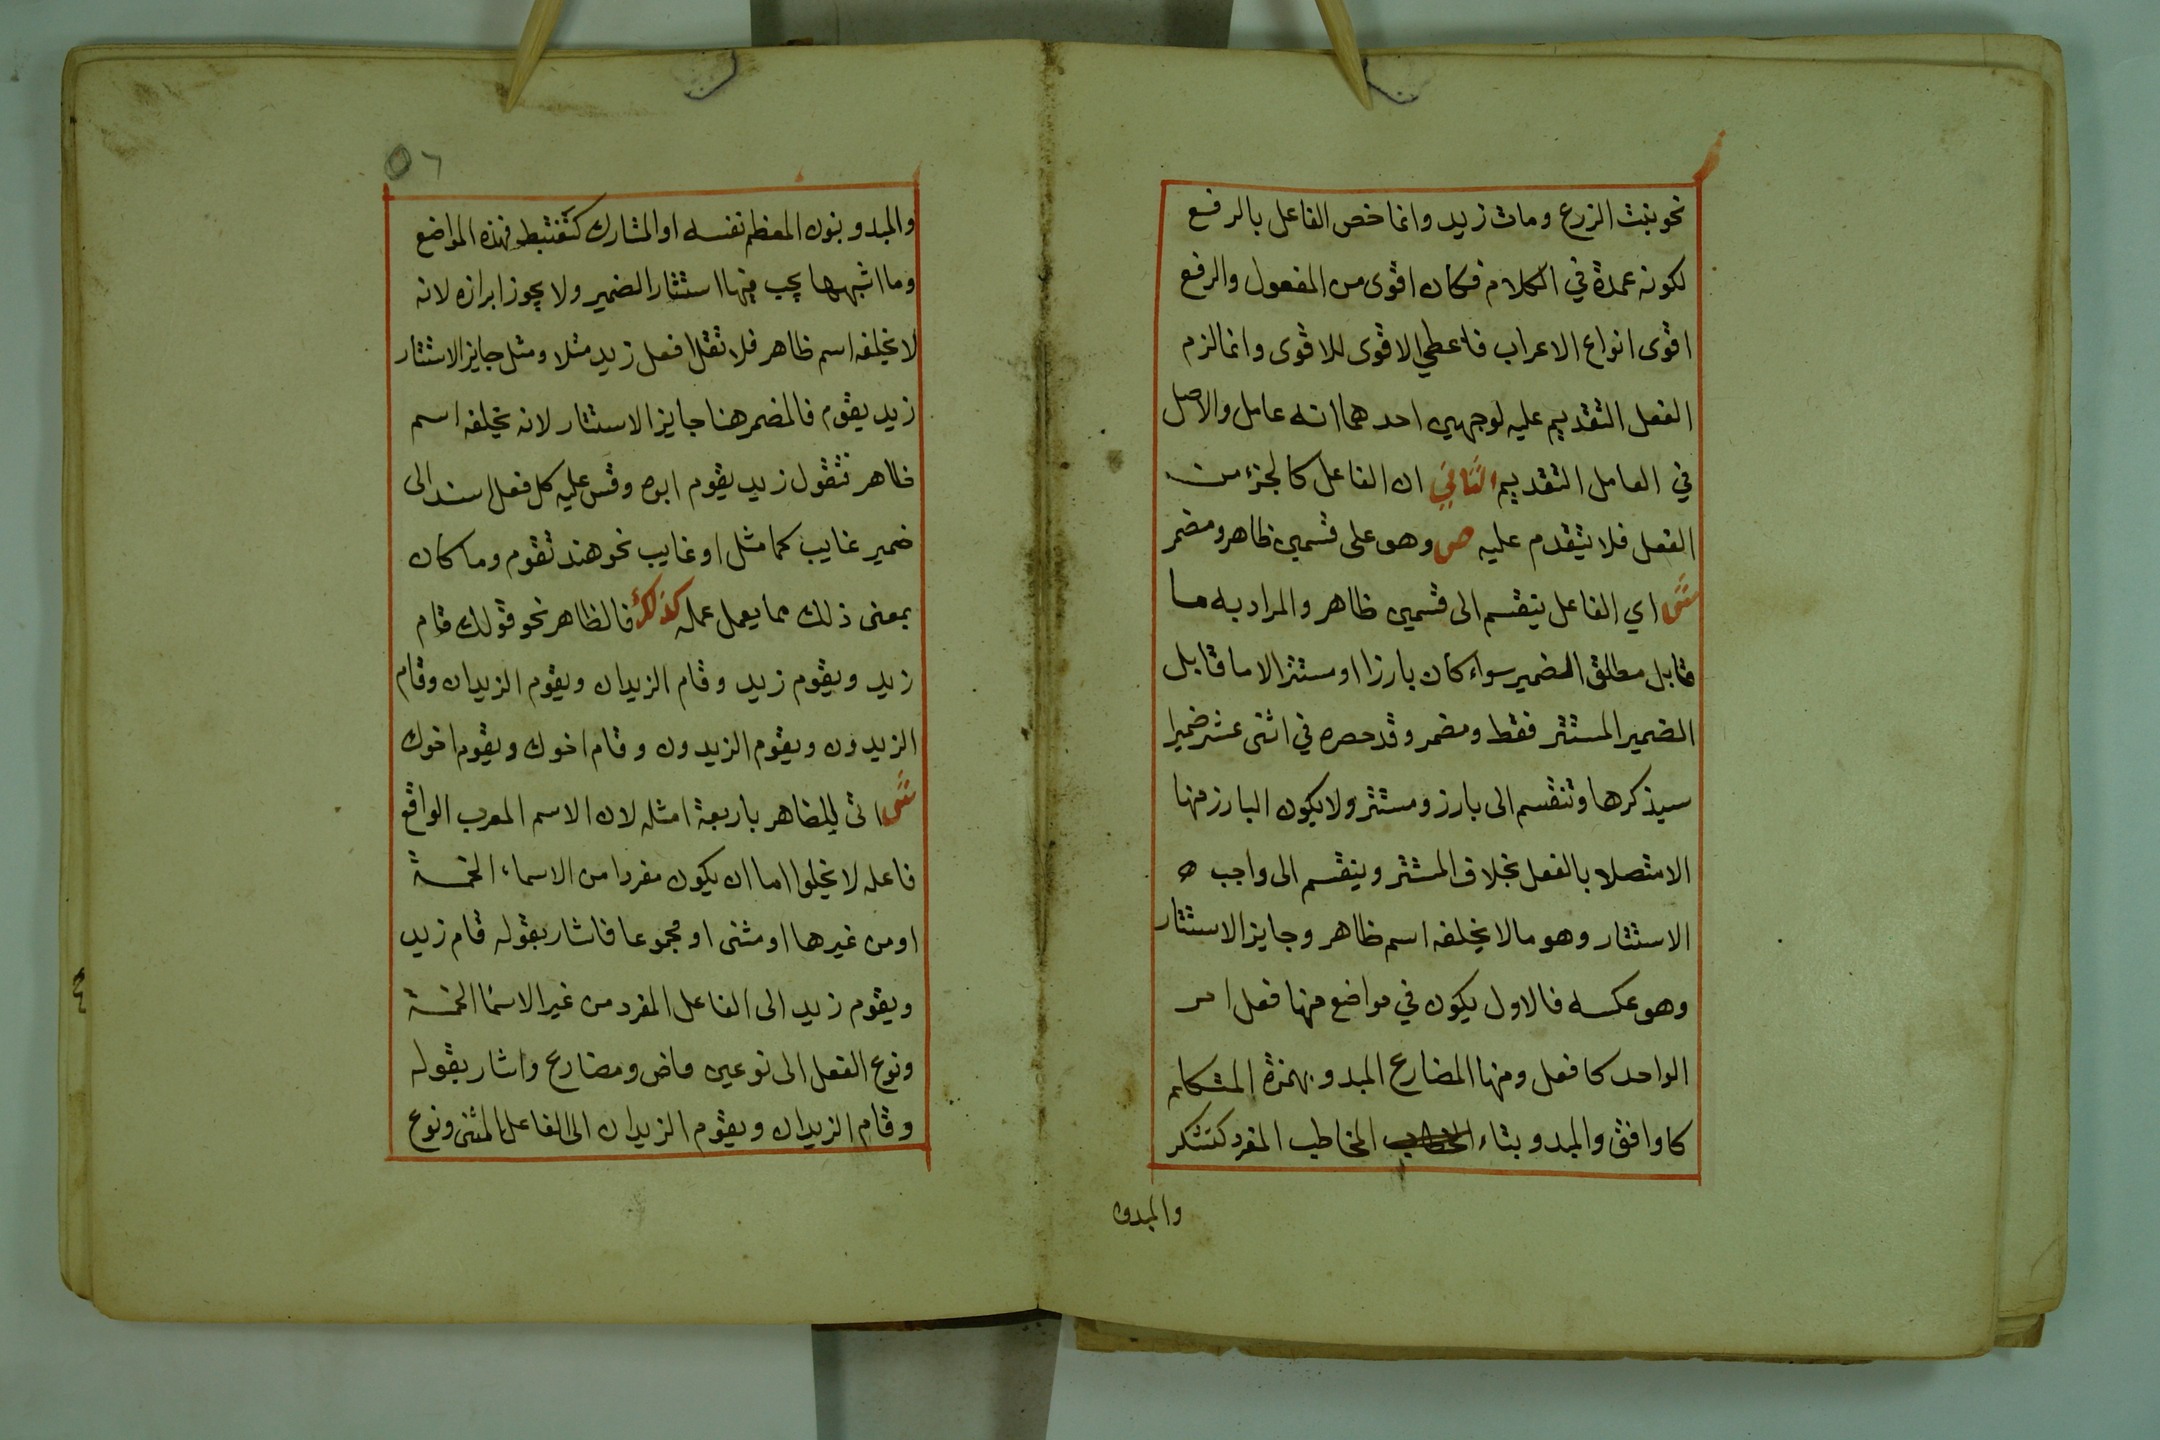 نحو نبت الزرع ومات زيد وانما خص الفاعل بالرفع
لكونه عمدة في الكلام فكان اقوى من المفعول والرفع
اقوى انواع الاعراب فاعطي الاقوى للاقوى وانما لزم
الفعل التقديم عليه لوجهين احدهما انه عامل والاصل
في العامل التقديم الثاني ان الفاعل كالجزء من
الفعل فلا يتقدم عليه ص وهو على قسمين ظاهر ومضمر
ش اي الفاعل ينقسم الى قسمين ظاهر والمراد به ما
قابل مطلق الضمير سواء كان بارزا او مستترا لا ما قابل
الضمير المستتر فقط ومضمر وقد حصره في اثنى عشر ضميرا
سيذكرها وتنقسم الى بارز ومستتر ولا يكون البارز منها
الا متصلا بالفعل بخلاف المستتر وينقسم الى واجب ه
الاستتار وهو ما لا يخلفه اسم ظاهر وجايز الاستتار
وهو عكسه فالاول يكون في مواضع منها فعل امر
الواحد كافعل ومنها المضارع المبدو بهمزة المتكلم
كاوافق والمبدو بتاء الخطاب المخاطب المفرد كتشكر
والمبدو
٥٦
والمبدو بنون المعظم نفسه او المشارك كنغتبط فهذه المواضع
وما اشبهها يجب فيها استتار الضمير ولا يجوز ابرازه لانه
لا يخلفه اسم ظاهر فلا تقل افعل زيد مثلا ومثل جايز الاستتار
زيد يقوم فالمضمر هنا جايز الاستتار لانه يخلفه اسم
ظاهر فتقول زيد يقوم ابوه وقس عليه كل فعل اسند الى
ضمير غايب كما مثل او غايب نحو هند تقوم وما كان
بمعنى ذلك مما يعمل عمله كذلك فالظاهر نحو قولك قام
زيد ويقوم زيد وقام الزيدان ويقوم الزيدان وقام
الزيدون ويقوم الزيدون وقام اخوك ويقوم اخوك
ش اتى للظاهر باربعة امثله لان الاسم المعرب الواقع
فاعله لا يخلوا اما ان يكون مفردا من الاسماء الخمسة
او من غيرها او مثنى او مجموعا فاشار بقوله قام زيد
ويقوم زيد الى الفاعل المفرد من غير الاسما الخمسة
ونوع الفعل الى نوعين ماض ومضارع واشار بقوله
وقام الزيدان ويقوم الزيدان الى الفاعل المثنى ونوع